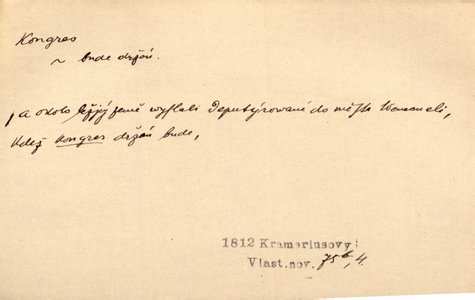 Kongres
~ bude držán.
, a okolo ležjcý země wyslali Deputýrowané do města
kdež kongres držán bude,
1812 Krameriusovy
Vlast. nov. 75b, 4.